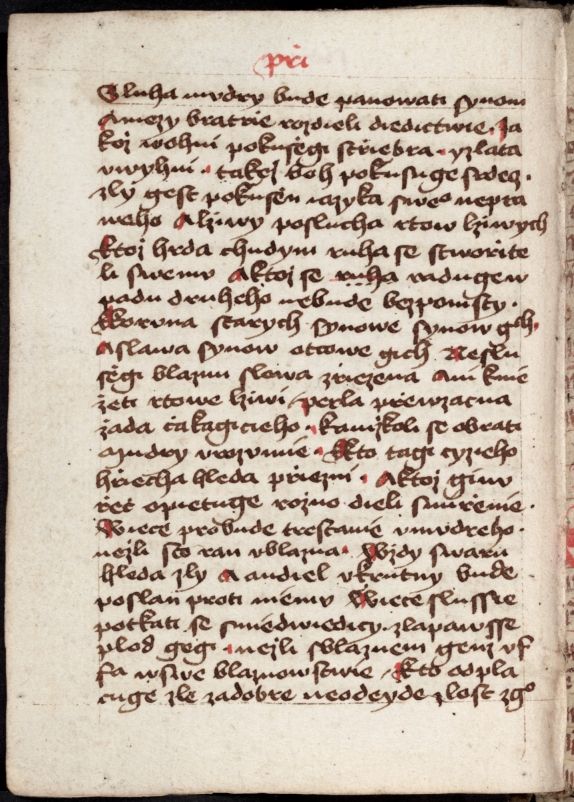 při
Sluha mudry bude panowati synom
Amezy bratrie rozdieli diedictwie. Ja
koż wohni pokusęgi střiebra. yzlata
vwyhni. takeż boh pokusuge srdecz.
zly gest pokusęn iazyka sweo neprta
weho Alziwy poslucha rtow lziwych
Ktoż hrda chudym ruha se stworite
li swemu Aktoż se ruha radugew
padu druheho nebude bezpomsty.
Koruna starych synowe synow gich.
Aslawa synow otcowe gich Neslu
ssegi blaznu slowa zriezena Ani knie
żeti rtowe lziwi. Perla přewzacna
żada czakagicieho. kamżkoli se obrati
Mudry vrozumie. Kto tagi cyzieho
hřiecha hleda přiezni. Aktoż ginu
řec opietuge rozno dieli smířenie.
Wiece probude trestanie vmudreho.
nejli sto ran vblazna. Wzdy swaru
hleda zly A andiel vkrutny bude
poslan proti niemu Wiece slussie
potkati se smedwiedicy. zlapawsse
plod gegi. nejli sblaznem genz vf
fa wswe blaznowstwie. Kto odpla
cuge zle zadobre neodeyde zlost zgo